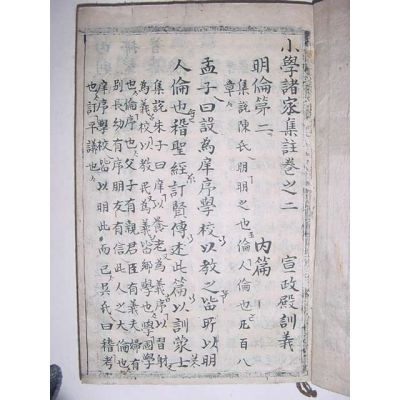 小學諸家集註卷之二　宣政殿訓義
明倫第二　內篇
集說陳氏曰明明之也倫人倫也凡百八
章
孟子曰設為庠序學校以敎之皆所以明
人倫也稽聖經訂賢傳述此篇以訓蒙士
集說朱子曰庠以養老為義序以習射
為義校以敎民為義皆鄉學也學國學
也倫序也父子有親君臣有義夫婦有
別長幼有序朋友有信此人之大倫也
庠序學校皆以明此而已吳氏曰稽考
也訂平議也